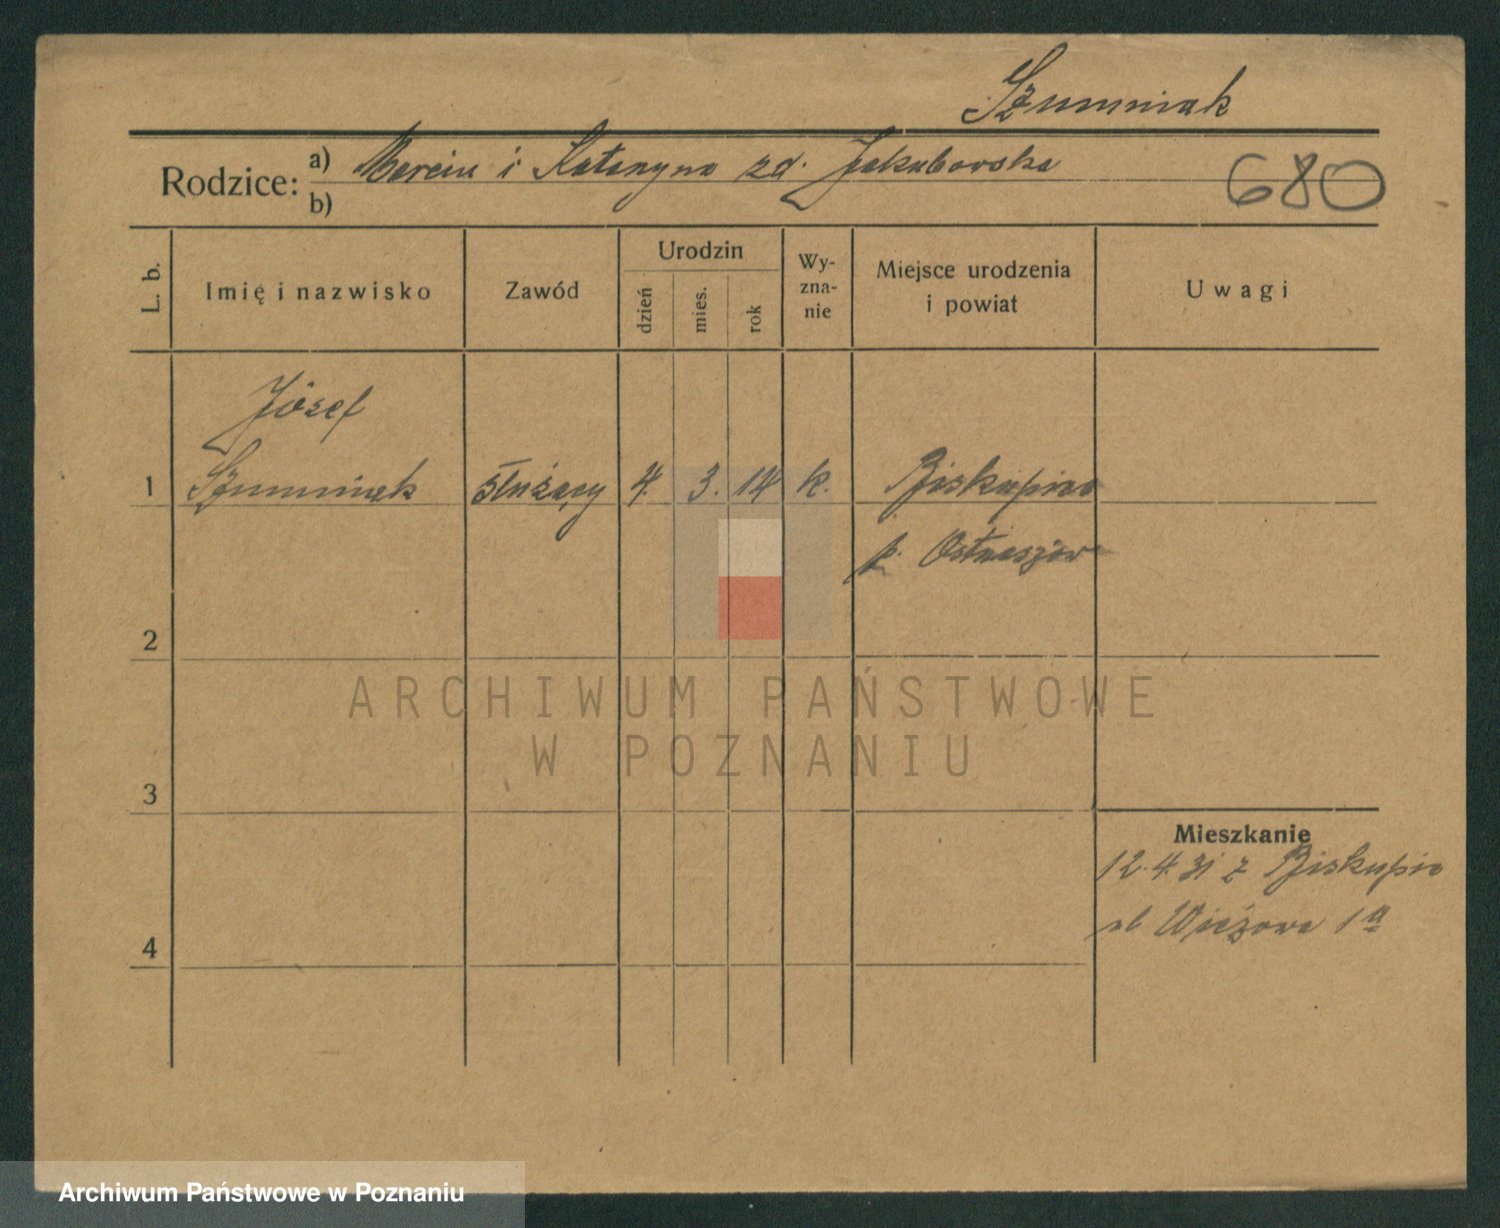 Szumniak
Rodzice: a) Marcin i Katarzyna zd. Jakubowska
b)
680
L. b. Imię i nazwisko Zawód Urodzin dzień mies. rok Wyzna-nie Miejsce urodzenia i powiat Uwagi
Józef
1 Szumniak służący 4. 3. 14 k. Biskupice
p.
2
ARCHIWUM PAŃSTWOWE
W POZNANIU
3
Mieszkanie
12.4.31 z Biskupic
ul Wieżowa 1a
4
Archiwum Państwowe w Poznaniu